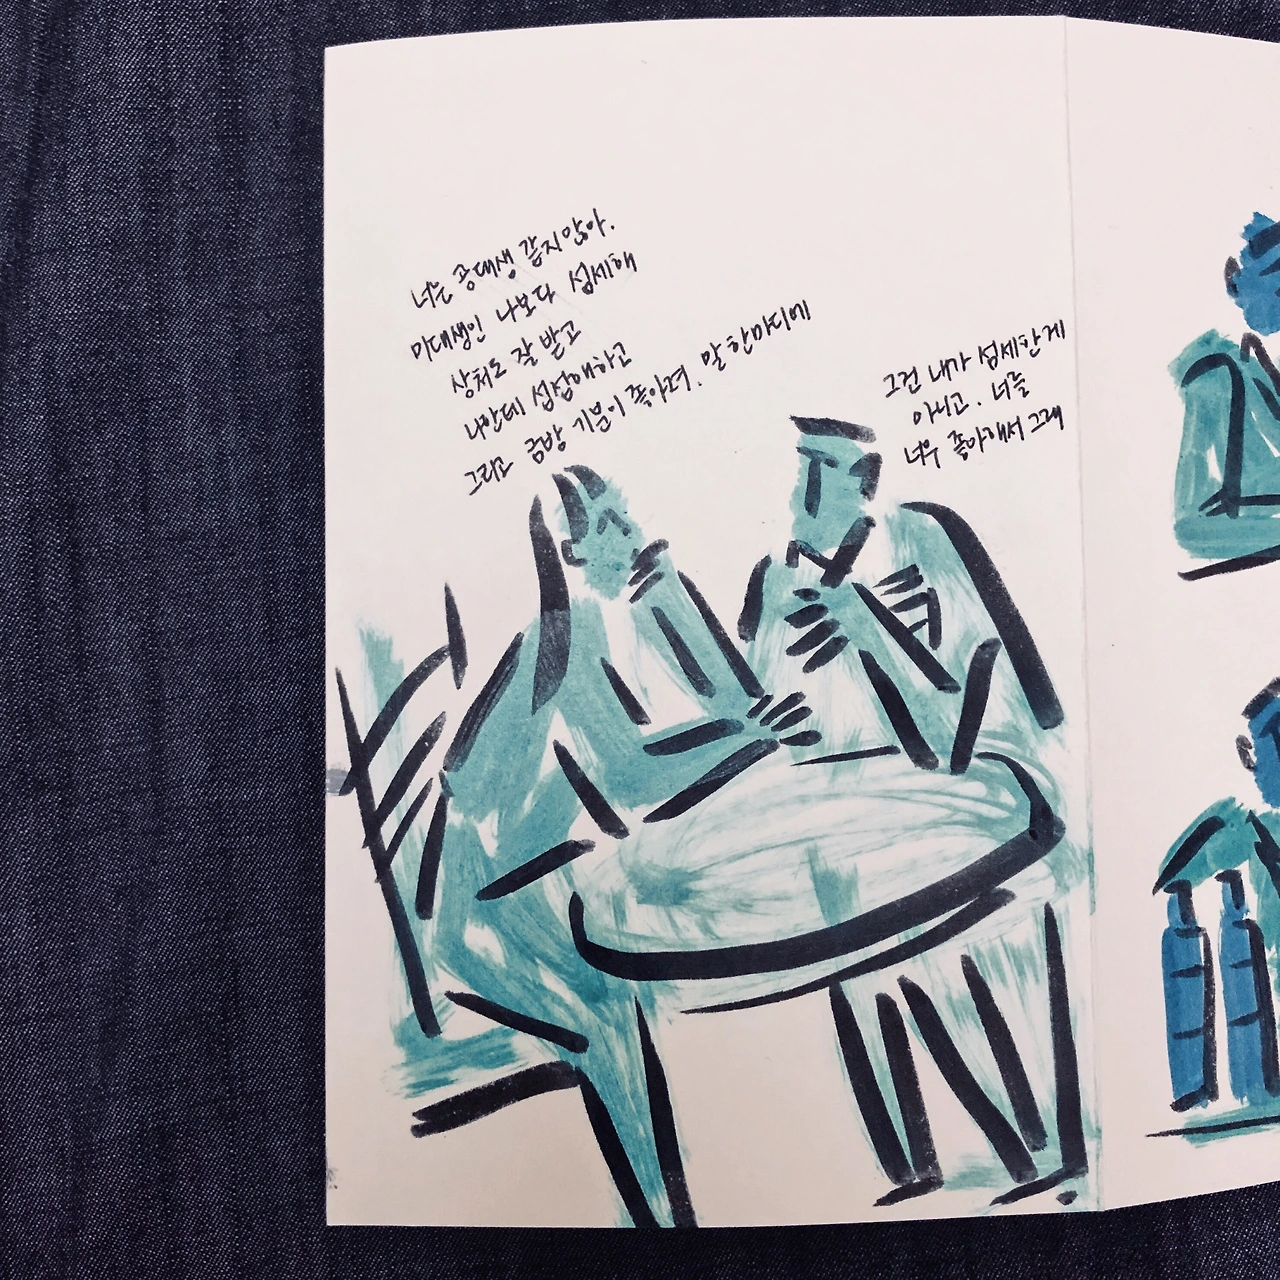 너는 공대생 같지않아.
미대생인 나보다 섬세해
상처도 잘 받고
나한테 섭섭해하고
그리고 금방 기분이 좋아져. 말 한마디에
그건 내가 섬세한게
아니고. 너를
너무 좋아해서 그래